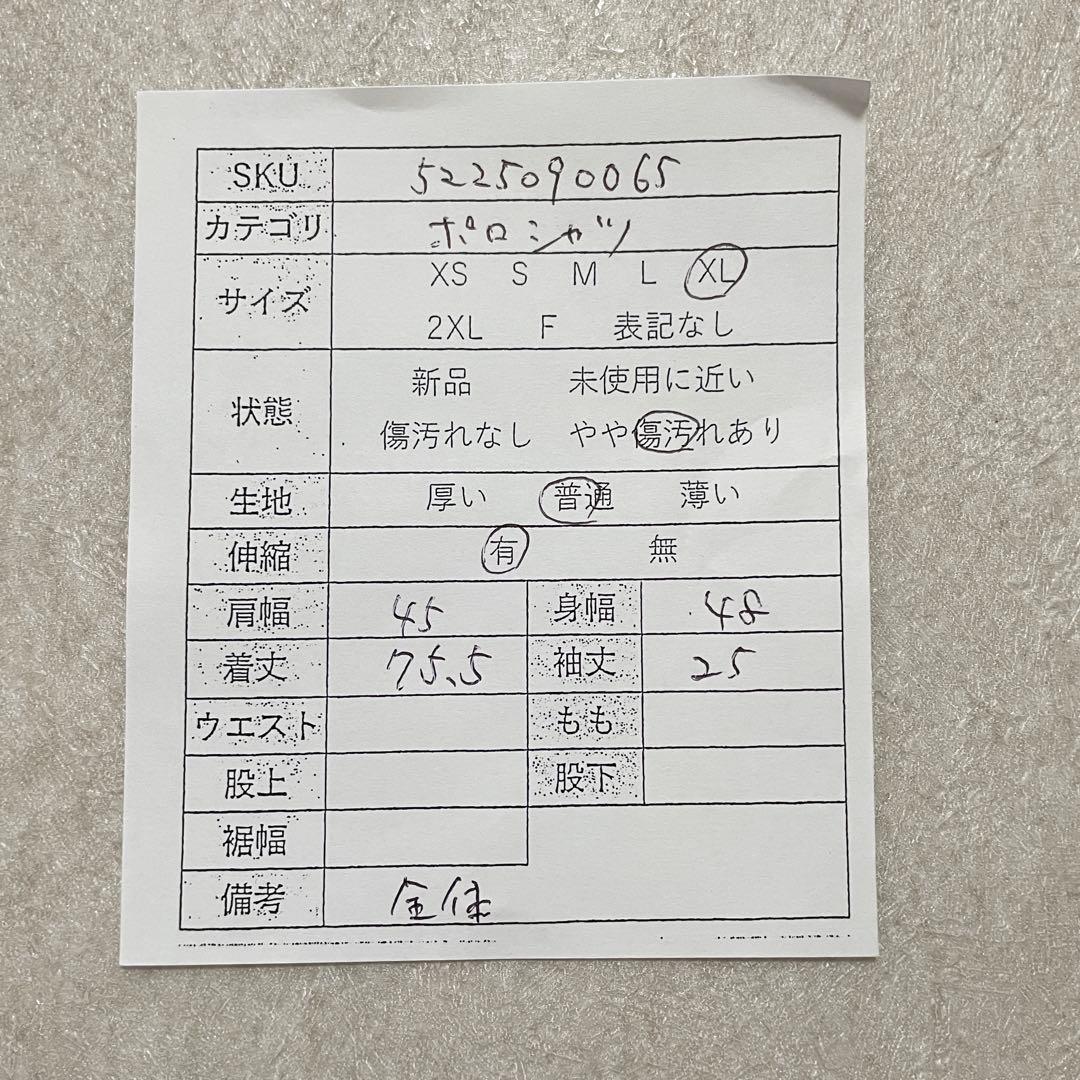 SKU 5225090065
カテゴリ ポロシャツ
サイズ XS S M L XL
2XL F 表記なし
状態 新品 未使用に近い
傷汚れなし やや傷汚れあり
生地 厚い 普通 薄い
伸縮 有 無
肩幅 45 身幅 48
着丈 75.5 袖丈 25
ウエスト もも
股上 股下
裾幅
備考 全体